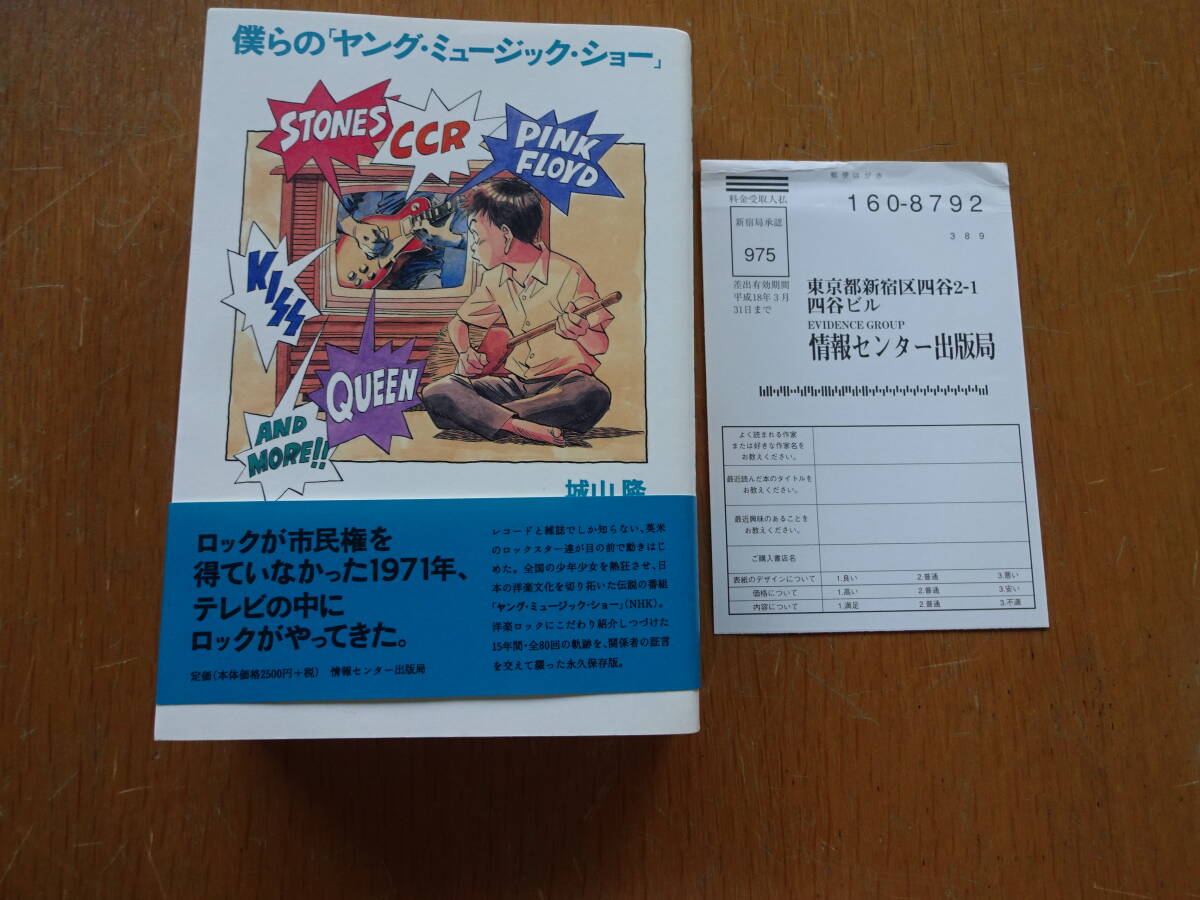 僕らの「ヤング・ミュージック・ショー」
STONES
CCR
PINK
FLOYD
KISS
QUEEN
AND
MORE!!
城山 隆
ロックが市民権を
得ていなかった1971年、
テレビの中に
ロックがやってきた。
定価(本体価格2500円+税) 情報センター出版局
レコードと雑誌でしか知らない、英米
のロックスター達が目の前で動きはじ
めた。全国の少年少女を熱狂させ、日
本の洋楽文化を切り拓いた伝説の番組
「ヤング・ミュージック・ショー」(NHK)。
洋楽ロックにこだわり紹介しつづけた
15年間・全80回の軌跡を、関係者の証言
を交えて綴った永久保存版。
郵便はがき
料金受取人払
160-8792
新宿局承認
975
389
差出有効期間
平成18年3月
31日まで
東京都新宿区四谷2-1
四谷ビル
EVIDENCE GROUP
情報センター出版局
よく読まれる作家
または好きな作家名を
お教えください。
最近読んだ本のタイトルを
お教えください。
最近興味のあることを
お教えください。
ご購入書店名
表紙のデザインについて 1.良い 2.普通 3.悪い
価格について 1.高い 2.普通 3.安い
内容について 1.満足 2.普通 3.不満